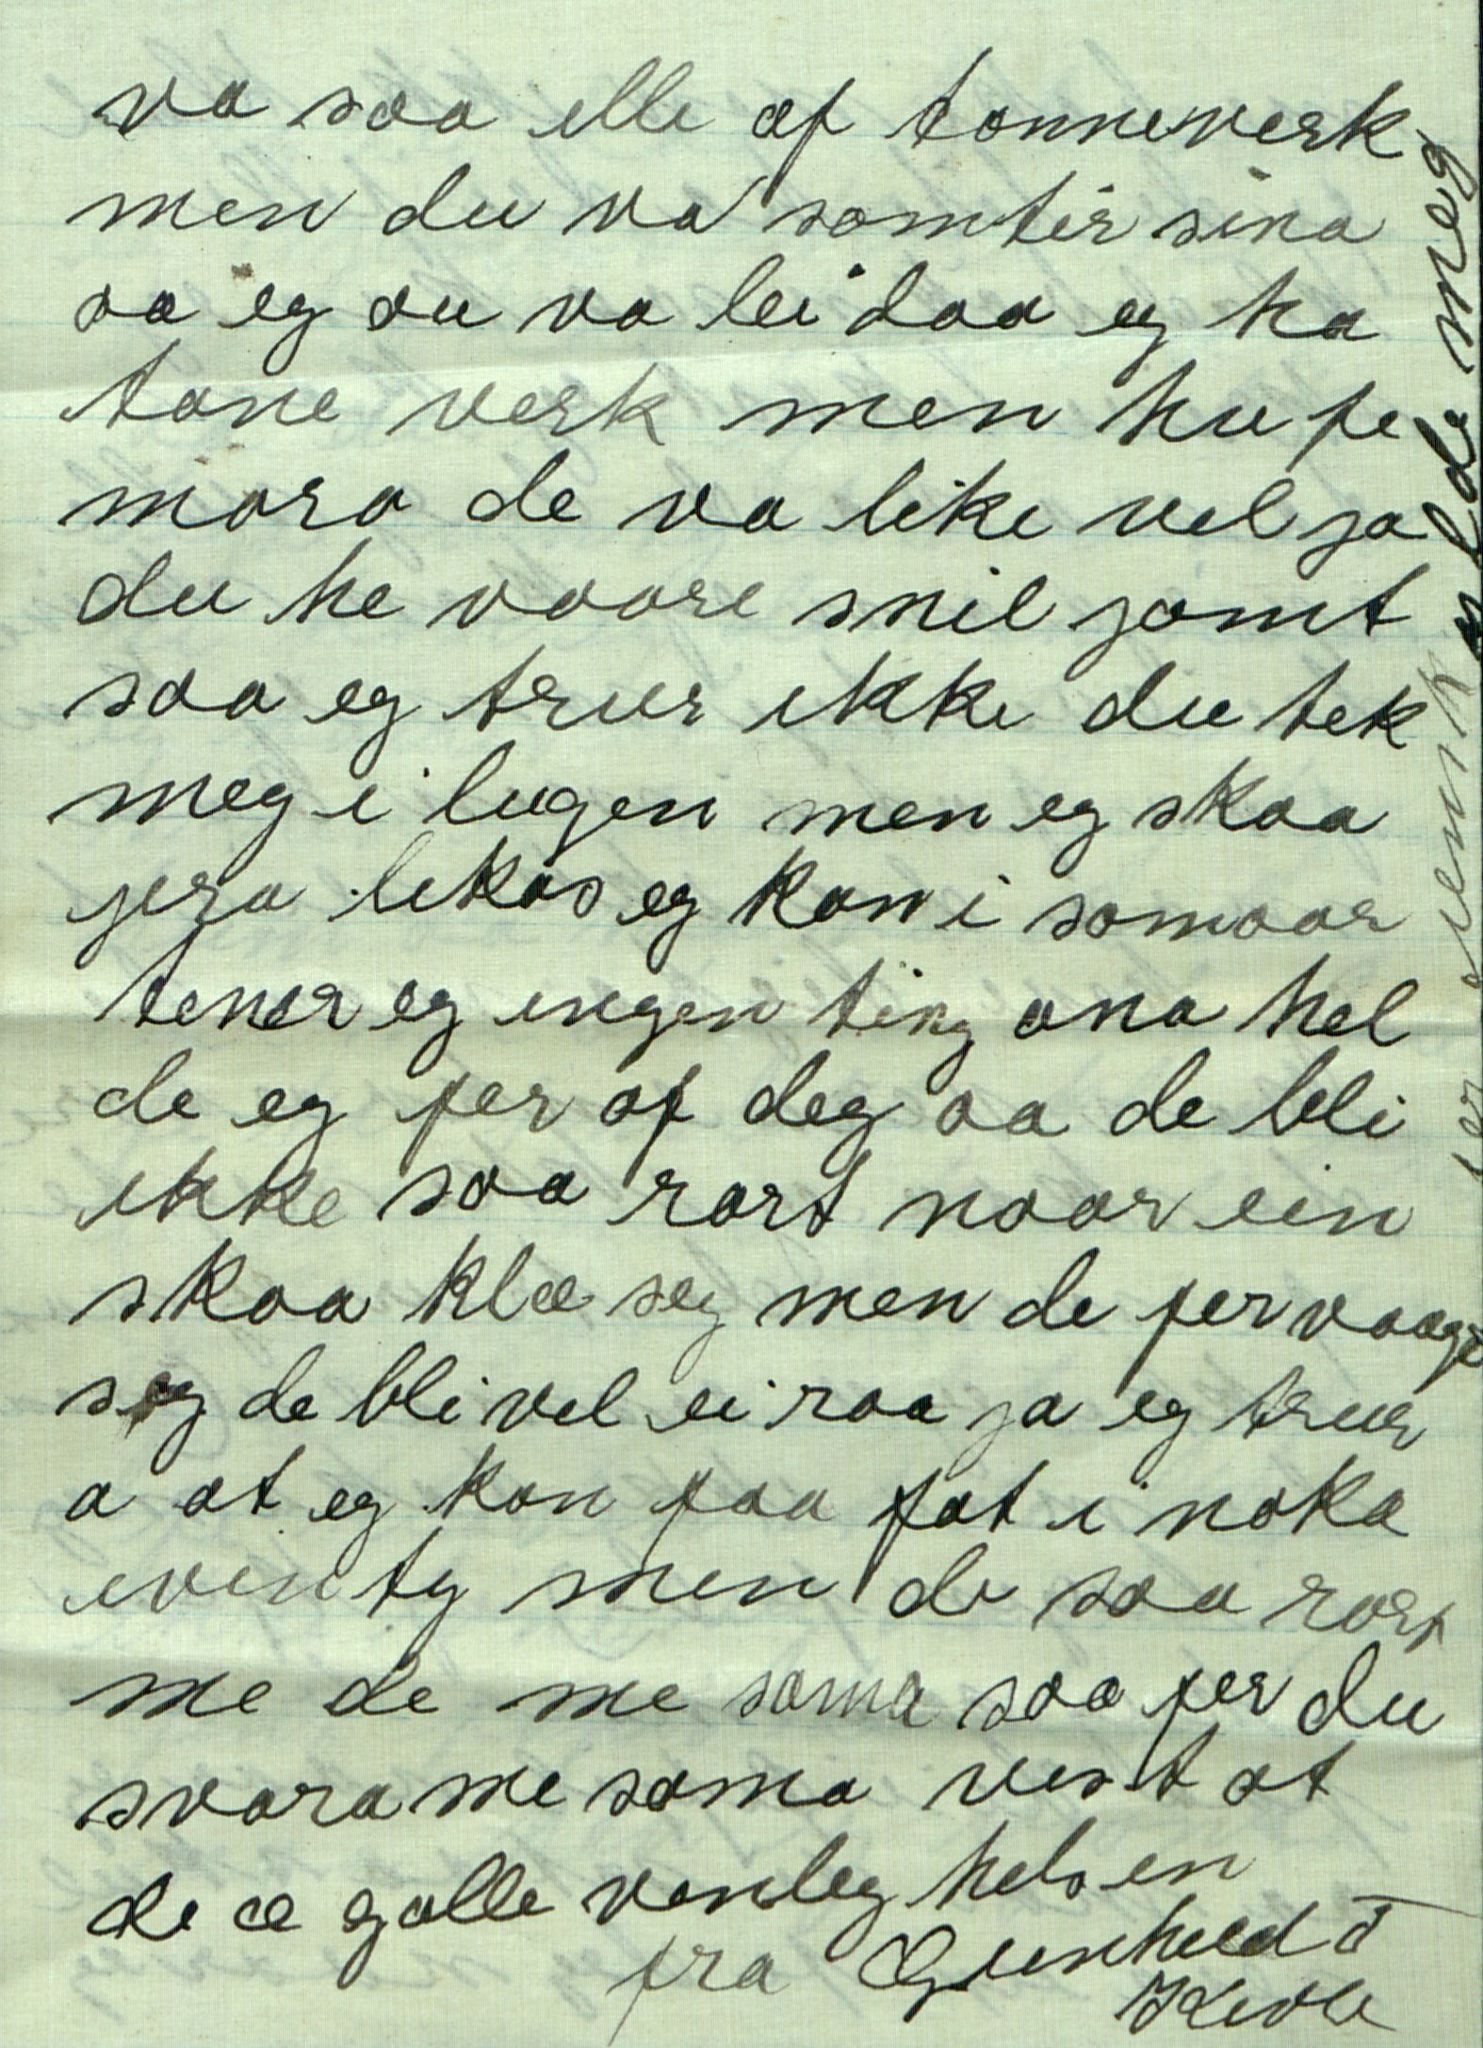 va saa ille af tonneverk
men du va somtir sina
aa eg au va lei daa eg ha
tane verk men hu fe
mora de va like vel ja
du he vaare snil jamt
saa eg trur ikke du tek
meg i lugen men eg skaa
jera lekas eg kan i somaar
tener eg ingen ting ana hel
de eg fer af deg aa de bli
ikke saa rart naar ein
skaa klæ seg men de fer vaage
seg de bli vel ei raa ja eg trur
a at eg kan faa fat i noka
eventy men de saa rart
me de me sama saa fer du
svara me sama vist at
de æ galle venleg helsen
fra Gunheld T
Kivle